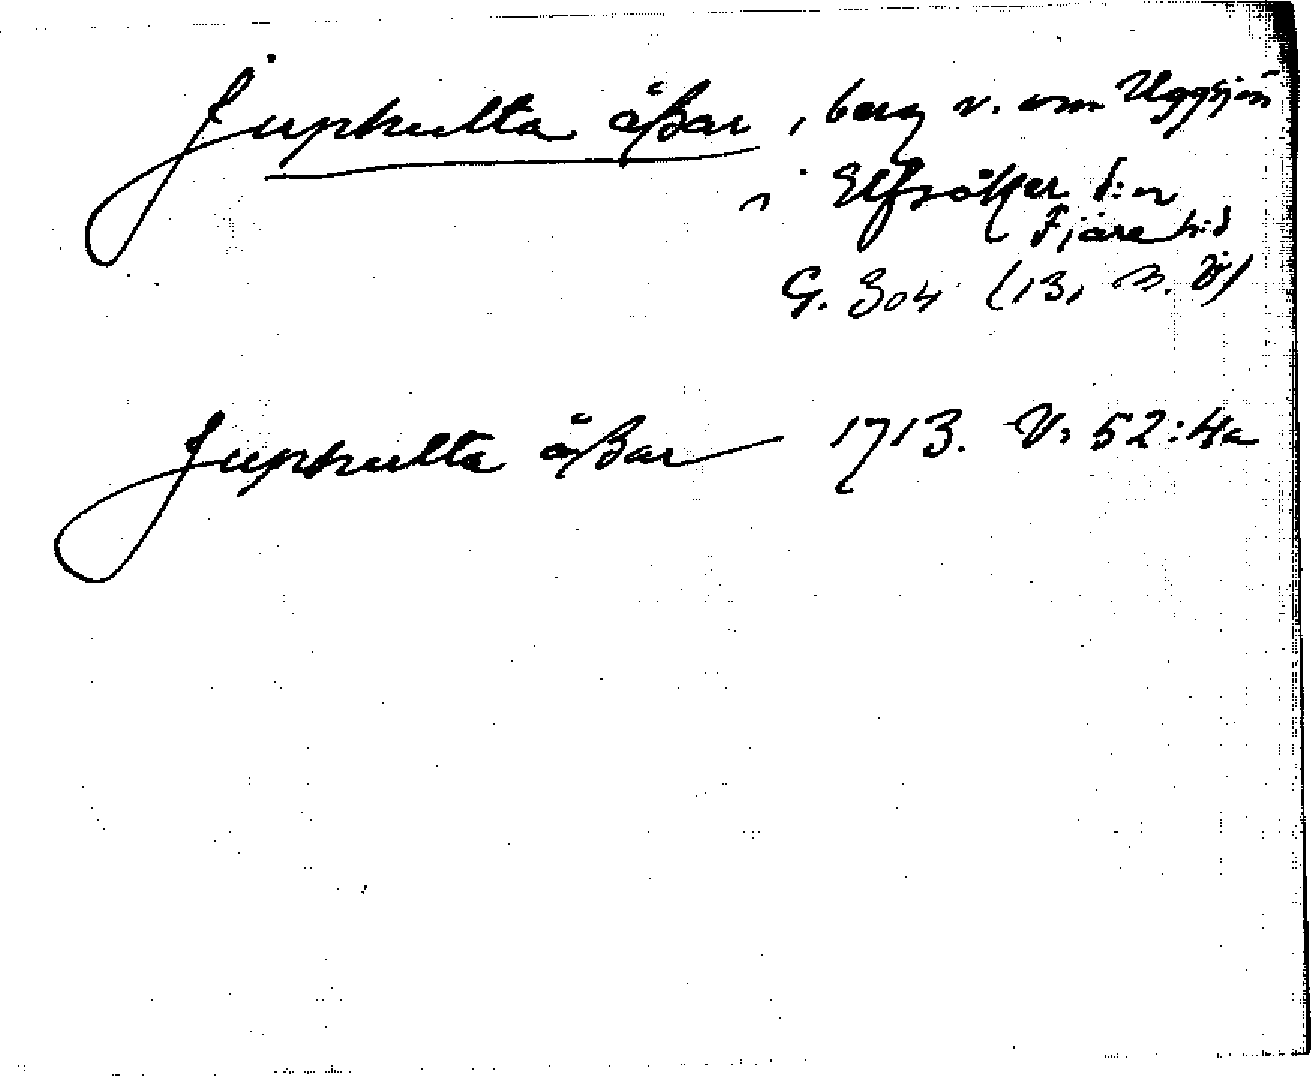 Juphulta åßar, berg v. om Uggsjön
i Elfsåker s:n
Fjäre h:d
G. 304 (13,
Juphulta åßar 1713. V: 52:4a